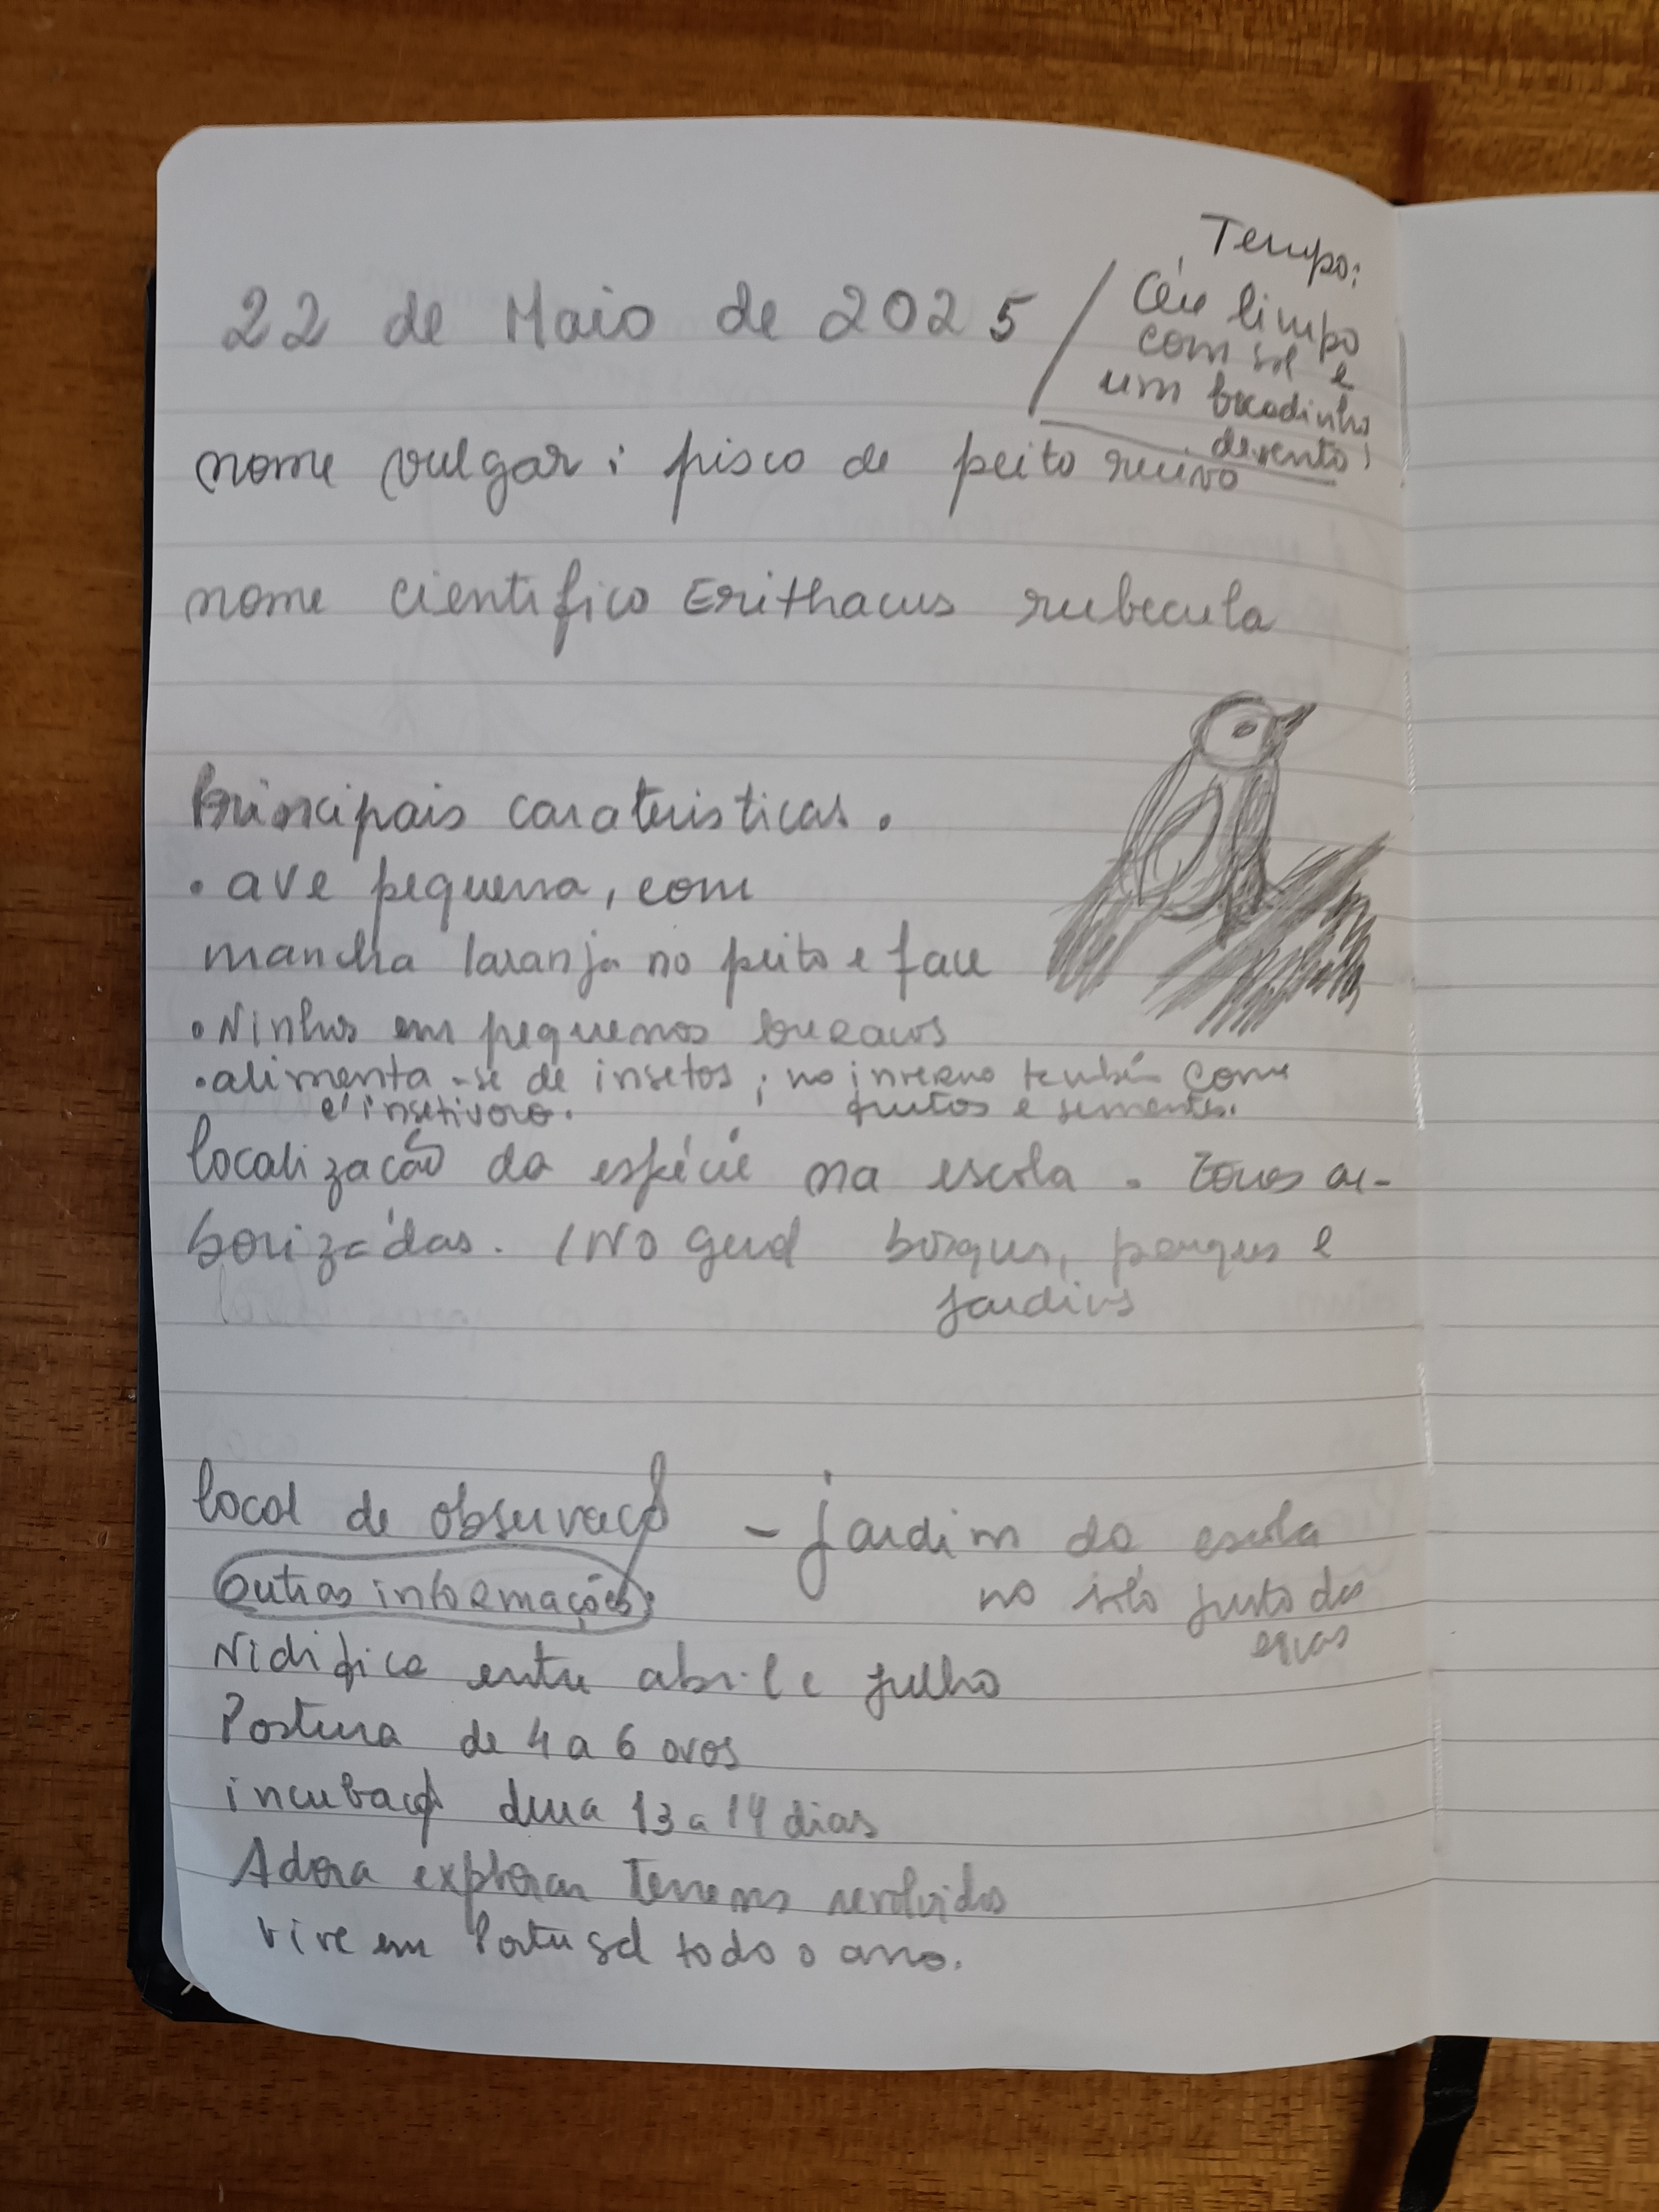 22 de Maio de 2025
Tempo:
Céu limpo
com sol e
um bocadinho
de vento
nome vulgar: pisco de peito ruivo
nome cientifico Erithacus rubecula
Principais caraterísticas.
• ave pequena, com
mancha laranja no peito e face
• Ninhos em pequenos buracos
• alimenta-se de insetos; no inverno também come
é insetivoro. frutos e sementes.
localização da espécie na escola. Zonas ar-
borizadas. (No geral bosques, parques e
jardins
local de observação - jardim da escola
no solo junto das
Outras informações:
Nidifica entre abril e julho
Postura de 4 a 6 ovos
incubação dura 13 a 14 dias
Adora explorar terrenos revolvidos
vive em Portugal todo o ano.